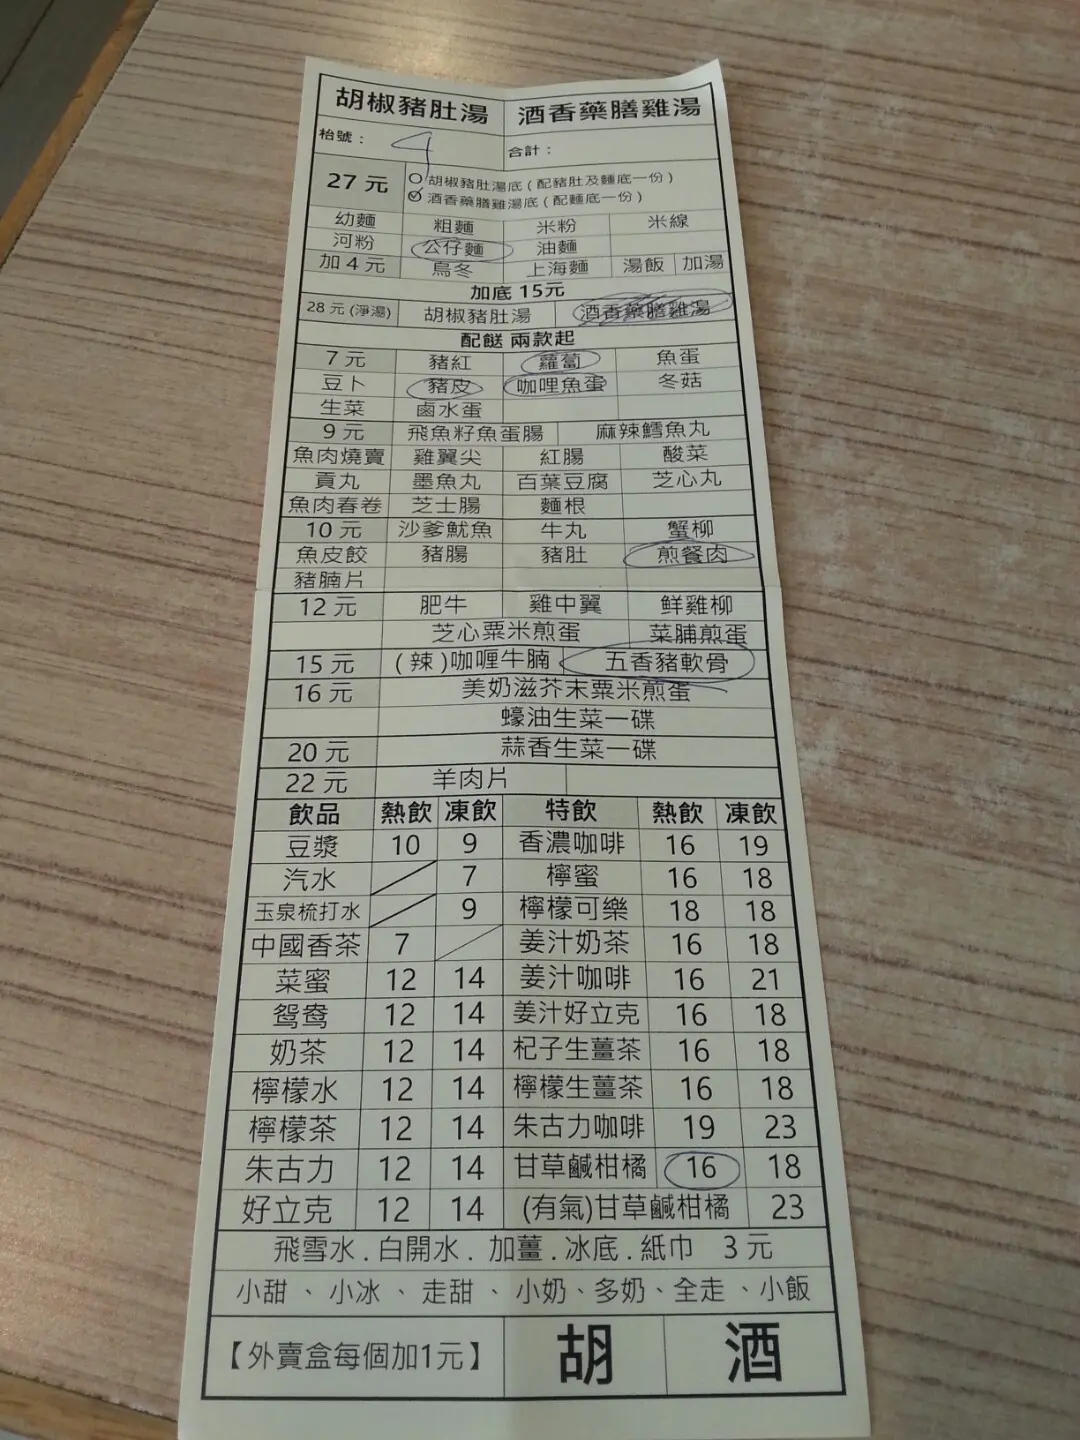 胡椒豬肚湯 酒香藥膳雞湯
枱號： 9 合計：
27 元 胡椒豬肚湯底（配豬肚及麵底一份）
酒香藥膳雞湯底（配麵底一份）
幼麵 粗麵 米粉 米線
河粉 公仔麵 油麵
加 4 元 烏冬 上海麵 湯飯 加湯
加底 15元
28 元 (淨湯) 胡椒豬肚湯 酒香藥膳雞湯
配餸 兩款起
7 元 豬紅 蘿蔔 魚蛋
豆卜 豬皮 咖哩魚蛋 冬菇
生菜 鹵水蛋
9 元 飛魚籽魚蛋腸 麻辣鱈魚丸
魚肉燒賣 雞翼尖 紅腸 酸菜
貢丸 墨魚丸 百葉豆腐 芝心丸
魚肉春卷 芝士腸 麵根
10 元 沙爹魷魚 牛丸 蟹柳
魚皮餃 豬腸 豬肚 煎餐肉
豬腩片
12 元 肥牛 雞中翼 鮮雞柳
芝心粟米煎蛋 菜脯煎蛋
15 元 (辣)咖喱牛腩 五香豬軟骨
16 元 美奶滋芥末粟米煎蛋
蠔油生菜一碟
20 元 蒜香生菜一碟
22 元 羊肉片
飲品 熱飲 凍飲 特飲 熱飲 凍飲
豆漿 10 9 香濃咖啡 16 19
汽水 7 檸蜜 16 18
玉泉梳打水 9 檸檬可樂 18 18
中國香茶 7 姜汁奶茶 16 18
菜蜜 12 14 姜汁咖啡 16 21
鴛鴦 12 14 姜汁好立克 16 18
奶茶 12 14 杞子生薑茶 16 18
檸檬水 12 14 檸檬生薑茶 16 18
檸檬茶 12 14 朱古力咖啡 19 23
朱古力 12 14 甘草鹹柑橘 16 18
好立克 12 14 (有氣)甘草鹹柑橘 23
飛雪水 . 白開水 . 加薑 . 冰底 . 紙巾 3 元
小甜 、 小冰 、 走甜 、 小奶、多奶、全走 、小飯
【外賣盒每個加1元】 胡 酒